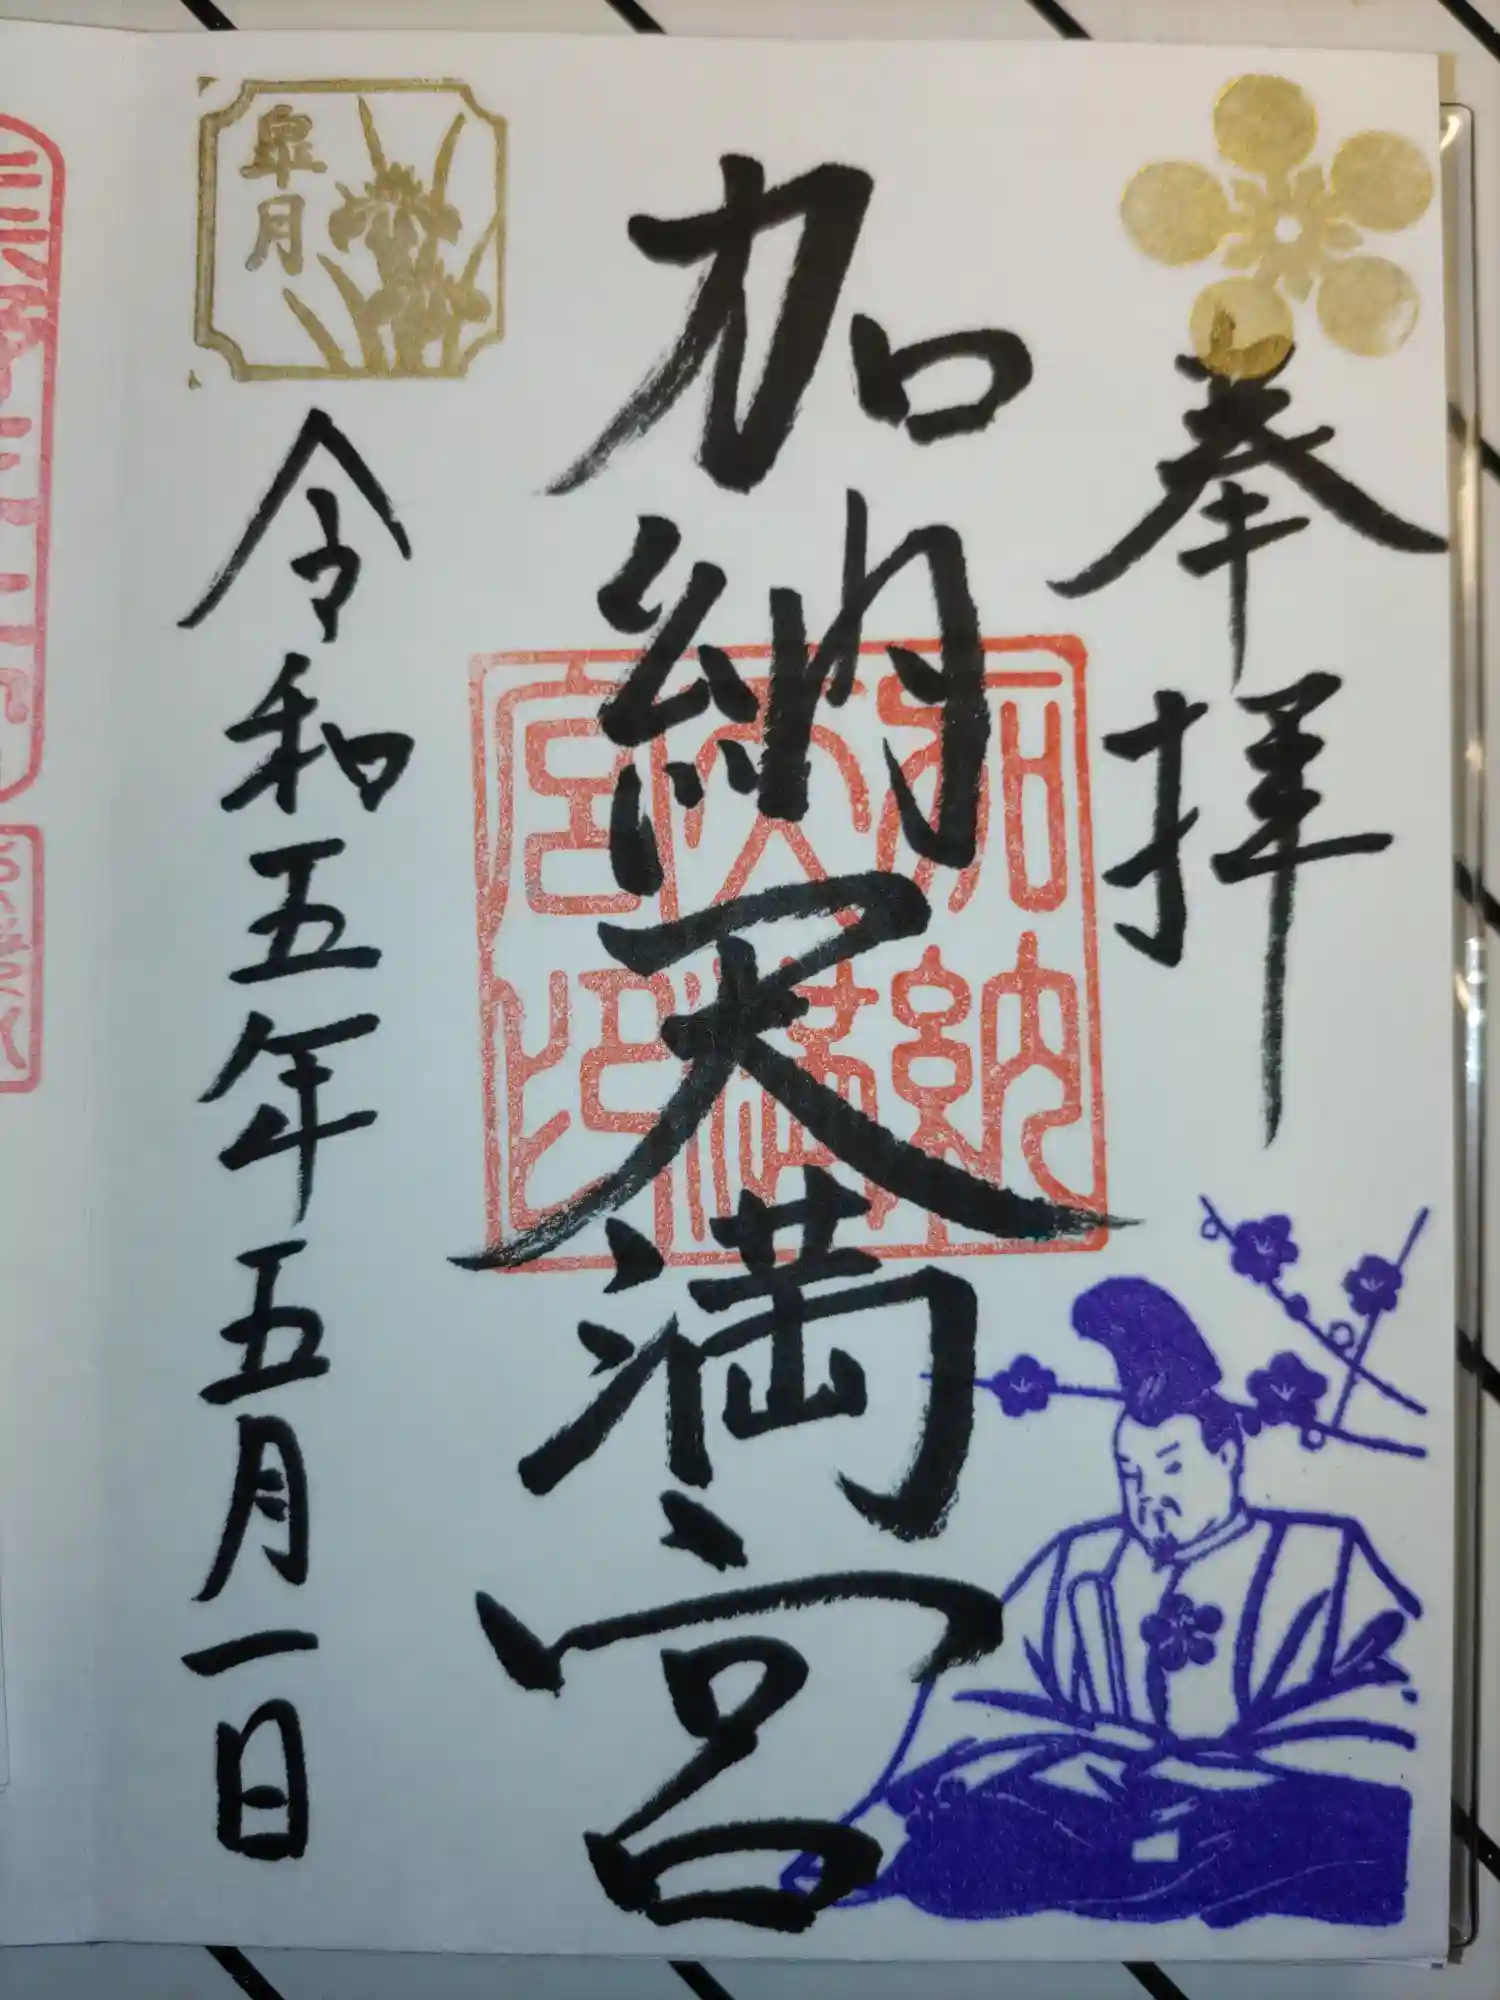 奉拝
加納天満宮
加納
天満
宮印
皐月
令和五年五月一日